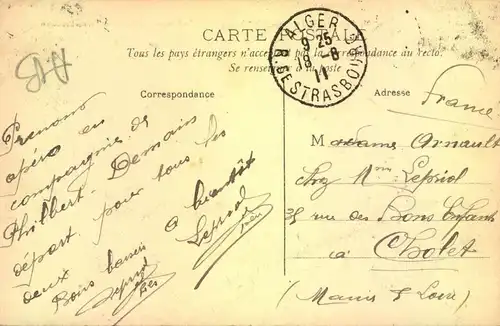 CARTE POSTALE
Tous les pays étrangers n'acceptent pas la correspondance au recto.
Se renseigner à la poste
ALGER
9 25
18-8
11
R. DE STRASBOURG
Correspondance
Adresse
France
Prenons
apéro en
compagnie de
Philbert. Demain
départ pour tous les
deux à bientôt
Bons baisers
Madame Arnault
chez Mme
rue des Bons Enfants
à
Cholet
(Maine & Loire)